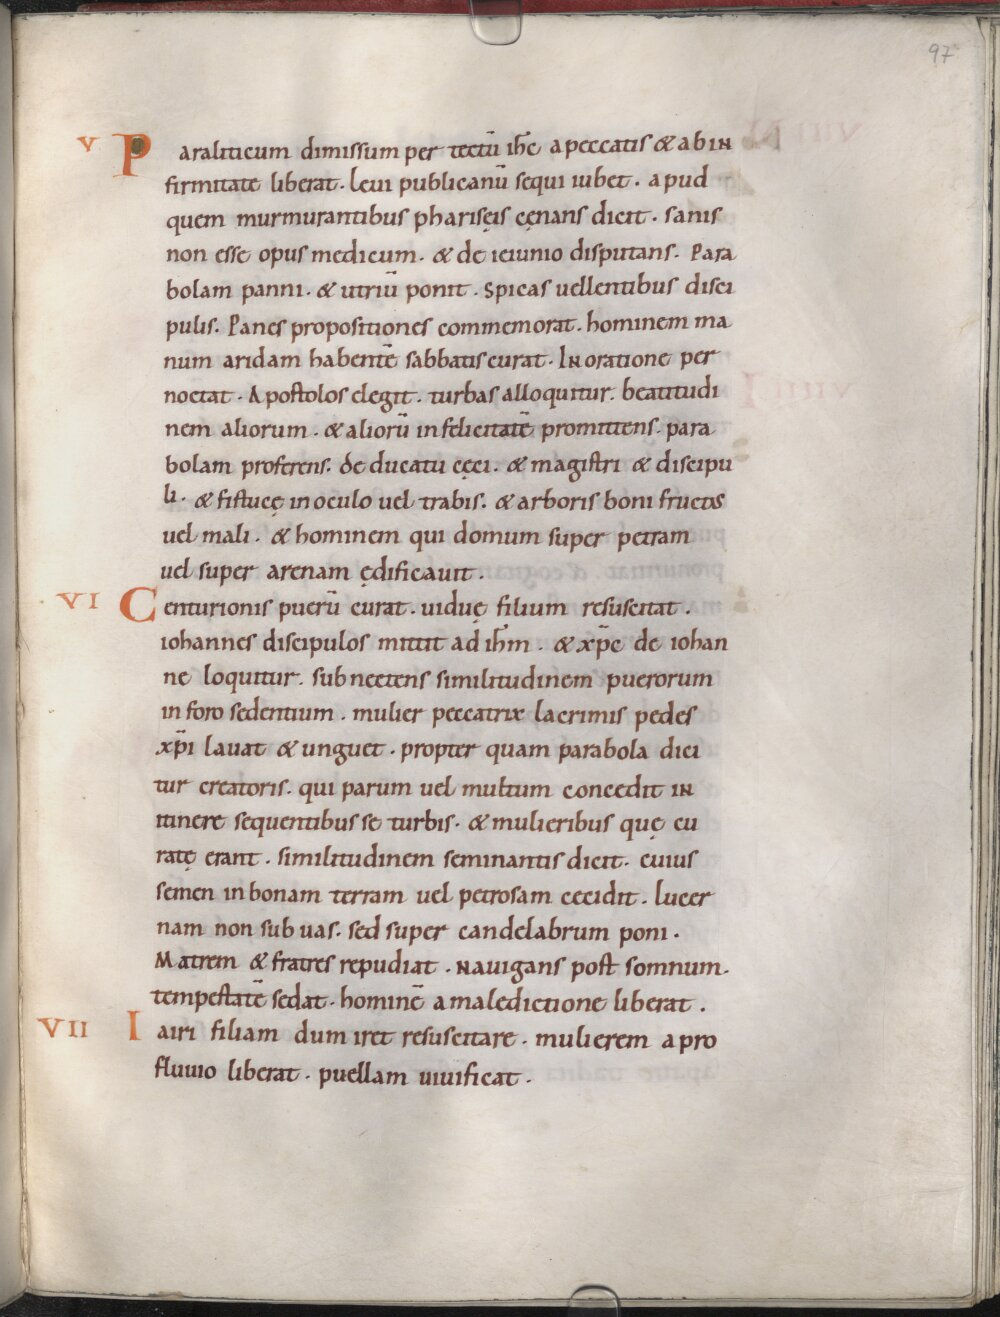 97
V Paraliticum dimissum per tectū ihc̄ a peccatis & ab in
firmitate liberat. Leui publicanū sequi iubet. apud
quem murmurantibus phariseis cęnans dicit. sanis
non esse opus medicum. & de ieiunio disputans. Para
bolam panni. & utriū ponit. Spicas uellentibus disci
pulis. Panes propositiones commemorat. hominem ma
num aridam habentē sabbatis curat. In oratione per
noctat. Apostolos elegit. turbas alloquitur. beatitudi
nem aliorum. & aliorū infelicitatē promittens. para
bolam proferens. de ducatu cęci. & magistri & discipu
li. & fistucę in oculo uel trabis. & arboris boni fructos
uel mali. & hominem qui domum super petram
uel super arenam ędificauit.
VI Centurionis puerū curat. uiduę filium resuscitat.
iohannes discipulos mittit ad ihm̄. & xpē de iohan
ne loquitur. subnectens similitudinem puerorum
in foro sedentium. mulier peccatrix lacrimis pedes
xpī lauat & unguet. propter quam parabola dici
tur creatoris. qui parum uel multum concedit in
itinere sequentibus se turbis. & mulieribus quę cu
ratę erant. similitudinem seminantis dicit. cuius
semen in bonam terram uel petrosam cecidit. lucer
nam non sub uas. sed super candelabrum poni.
Matrem & fratres repudiat. nauigans post somnum.
tempestatē sedat. hominē a maledictione liberat.
VII Iairi filiam dum iret resuscitare. mulierem a pro
fluuio liberat. puellam uiuificat.